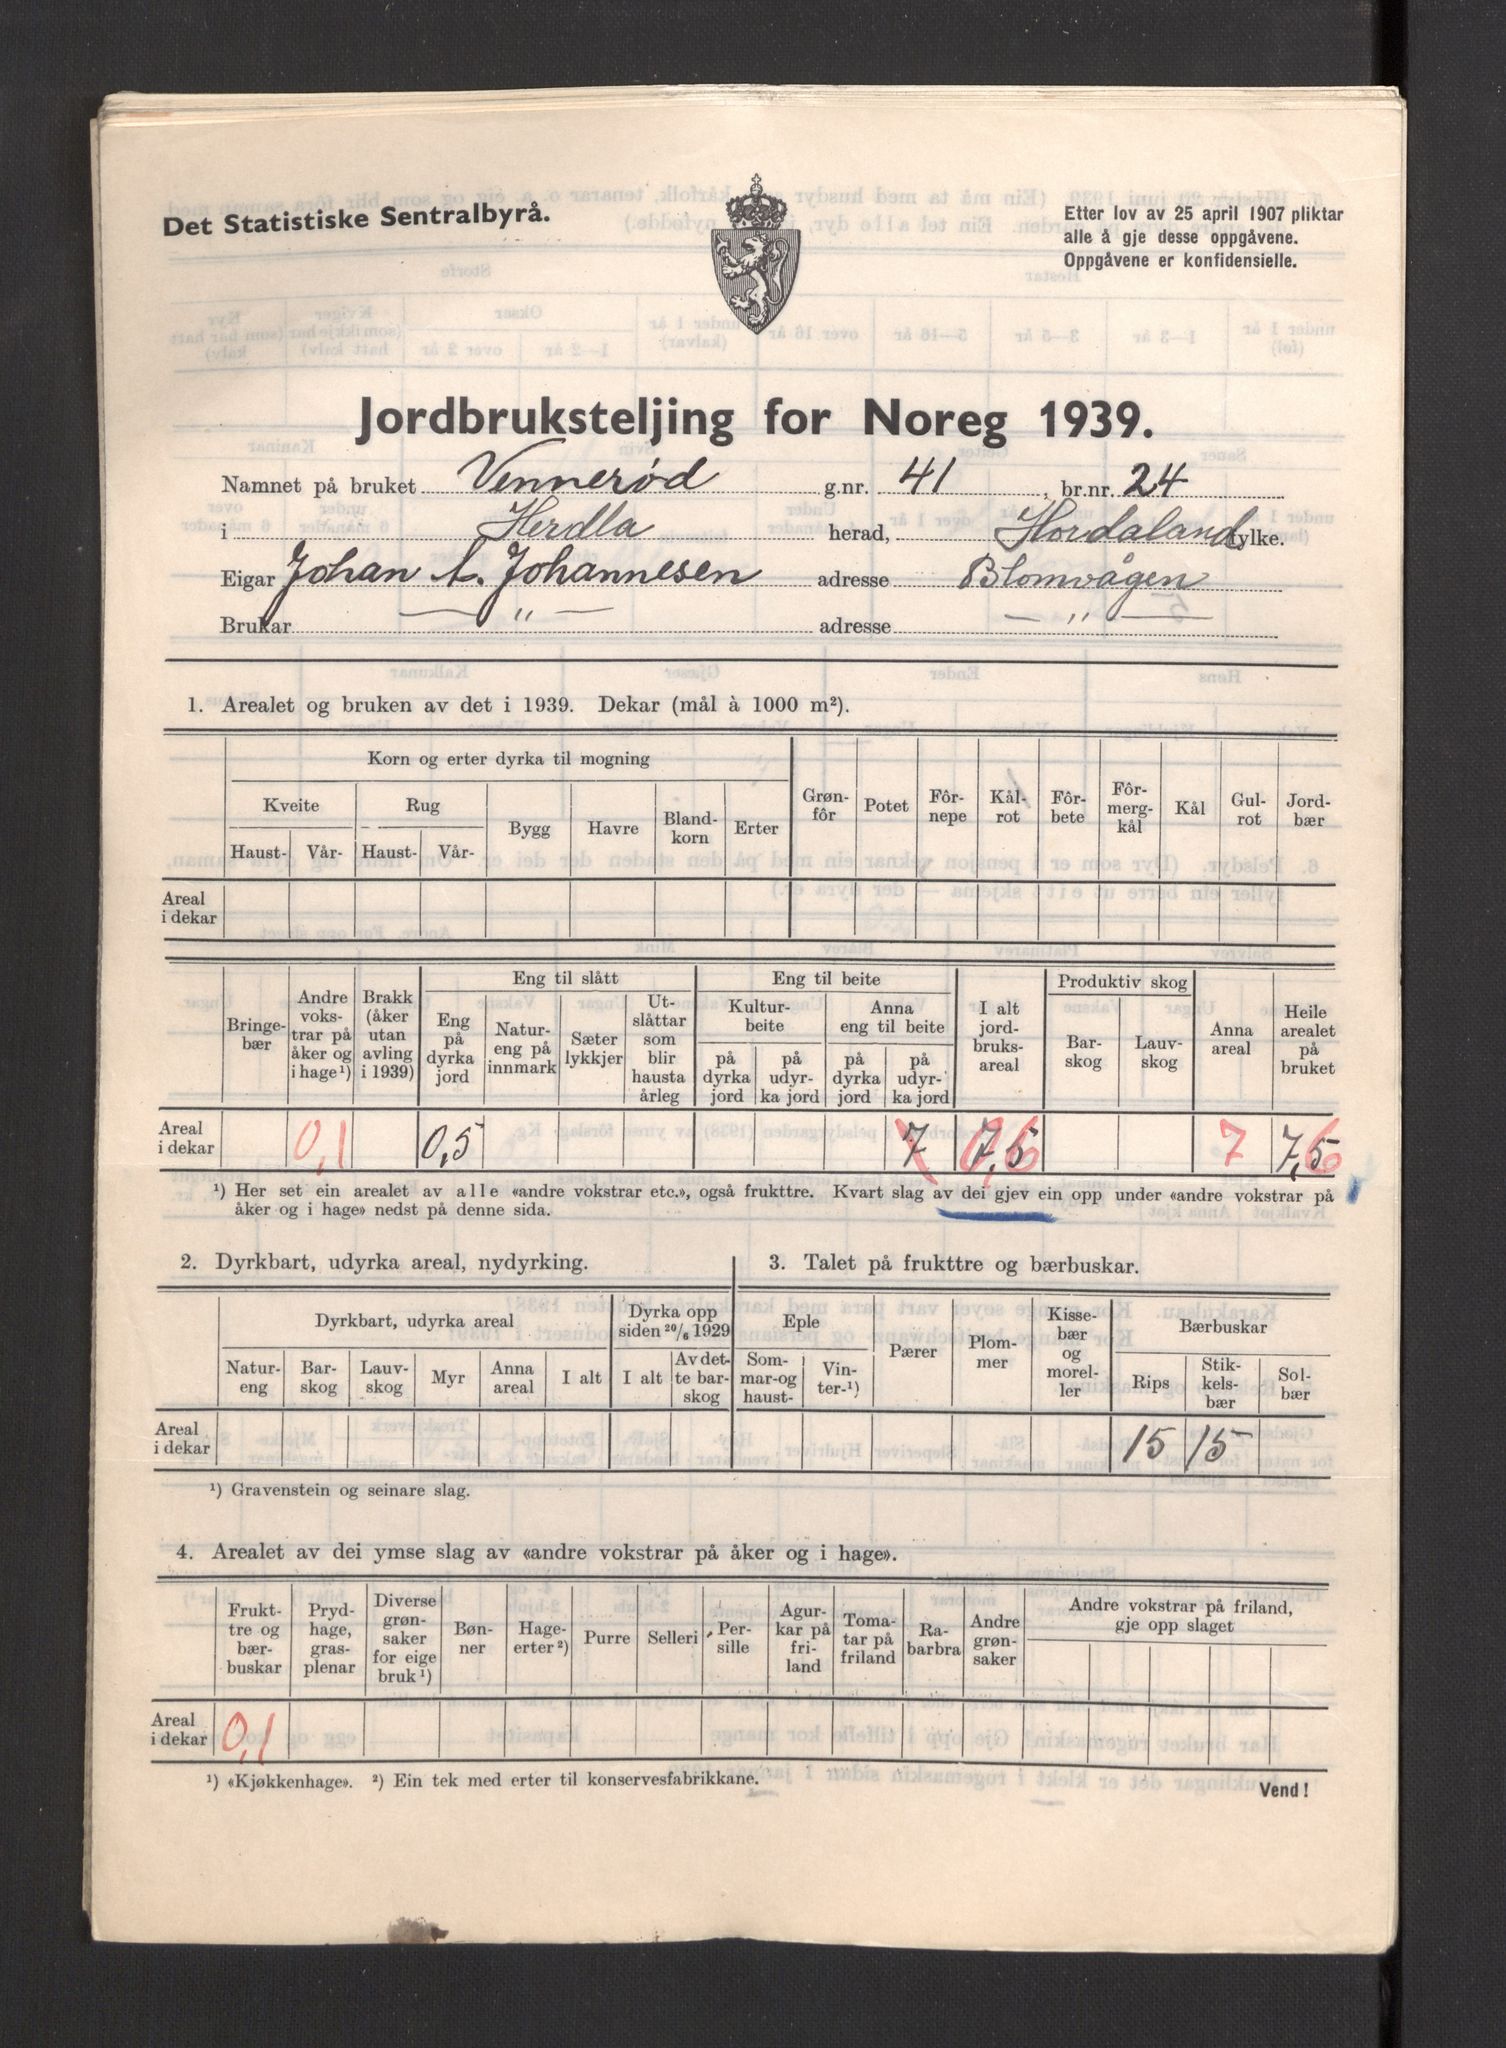 Det Statistiske Sentralbyrå.
Etter lov av 25 april 1907 pliktar
alle å gje desse oppgåvene.
Oppgåvene er konfidensielle.
Jordbruksteljing for Noreg 1939.
Namnet på bruket Vennerød g.nr. 41, br.nr. 24
i Herdla herad, Hordaland fylke.
Eigar Johan A. Johannesen adresse Blomvågen
Brukar — „ — adresse — „ —
1. Arealet og bruken av det i 1939. Dekar (mål à 1000 m²).
Korn og erter dyrka til mogning
Kveite Rug
Haust- Vår- Haust- Vår- Bygg Havre Bland-korn Erter Grøn-fôr Potet Fôr-nepe Kål-rot Fôr-bete Fôr-merg-kål Kål Gul-rot Jord-bær
Areal i dekar
Eng til slått Eng til beite Produktiv skog
Bringe-bær Andre voks-trar på åker og i hage¹) Brakk (åker utan avling i 1939) Eng på dyrka jord Natur-eng på innmark Sæter lykkjer Ut-slåttar som blir hausta årleg
Kultur-beite Anna eng til beite
på dyrka jord på udyr-ka jord på dyrka jord på udyr-ka jord
I alt jord-bruks-areal Bar-skog Lauv-skog Anna areal Heile arealet på bruket
Areal i dekar 0,1 0,5 7 7,5 0,6 7 7,5 6
¹) Her set ein arealet av alle «andre vokstrar etc.», også frukttre. Kvart slag av dei gjev ein opp under «andre vokstrar på
åker og i hage» nedst på denne sida.
2. Dyrkbart, udyrka areal, nydyrking.
3. Talet på frukttre og bærbuskar.
Dyrkbart, udyrka areal Dyrka opp siden 20/6 1929 Eple Bærbuskar
Natur-eng Bar-skog Lauv-skog Myr Anna areal I alt I alt Av det-te bar-skog Som-mar-og haust- Vin-ter-¹) Pærer Plom-mer Kisse-bær og morel-ler Rips Stik-kels-bær Sol-bær
Areal i dekar 15 15
¹) Gravenstein og seinare slag.
4. Arealet av dei ymse slag av «andre vokstrar på åker og i hage».
Frukt-tre og bær-buskar Pryd-hage, gras-plenar Diverse grøn-saker for eige bruk¹) Bøn-ner Hage-erter²) Purre Selleri Per-sille Agur-kar på fri-land Toma-tar på friland Ra-barbra Andre grøn-saker Andre vokstrar på friland, gje opp slaget
Areal i dekar 0,1
¹) «Kjøkkenhage». ²) Ein tek med erter til konservesfabrikkane.
Vend!